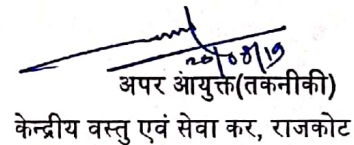 20/08/19
अपर आयुक्त(तकनीकी)
केन्द्रीय वस्तु एवं सेवा कर, राजकोट